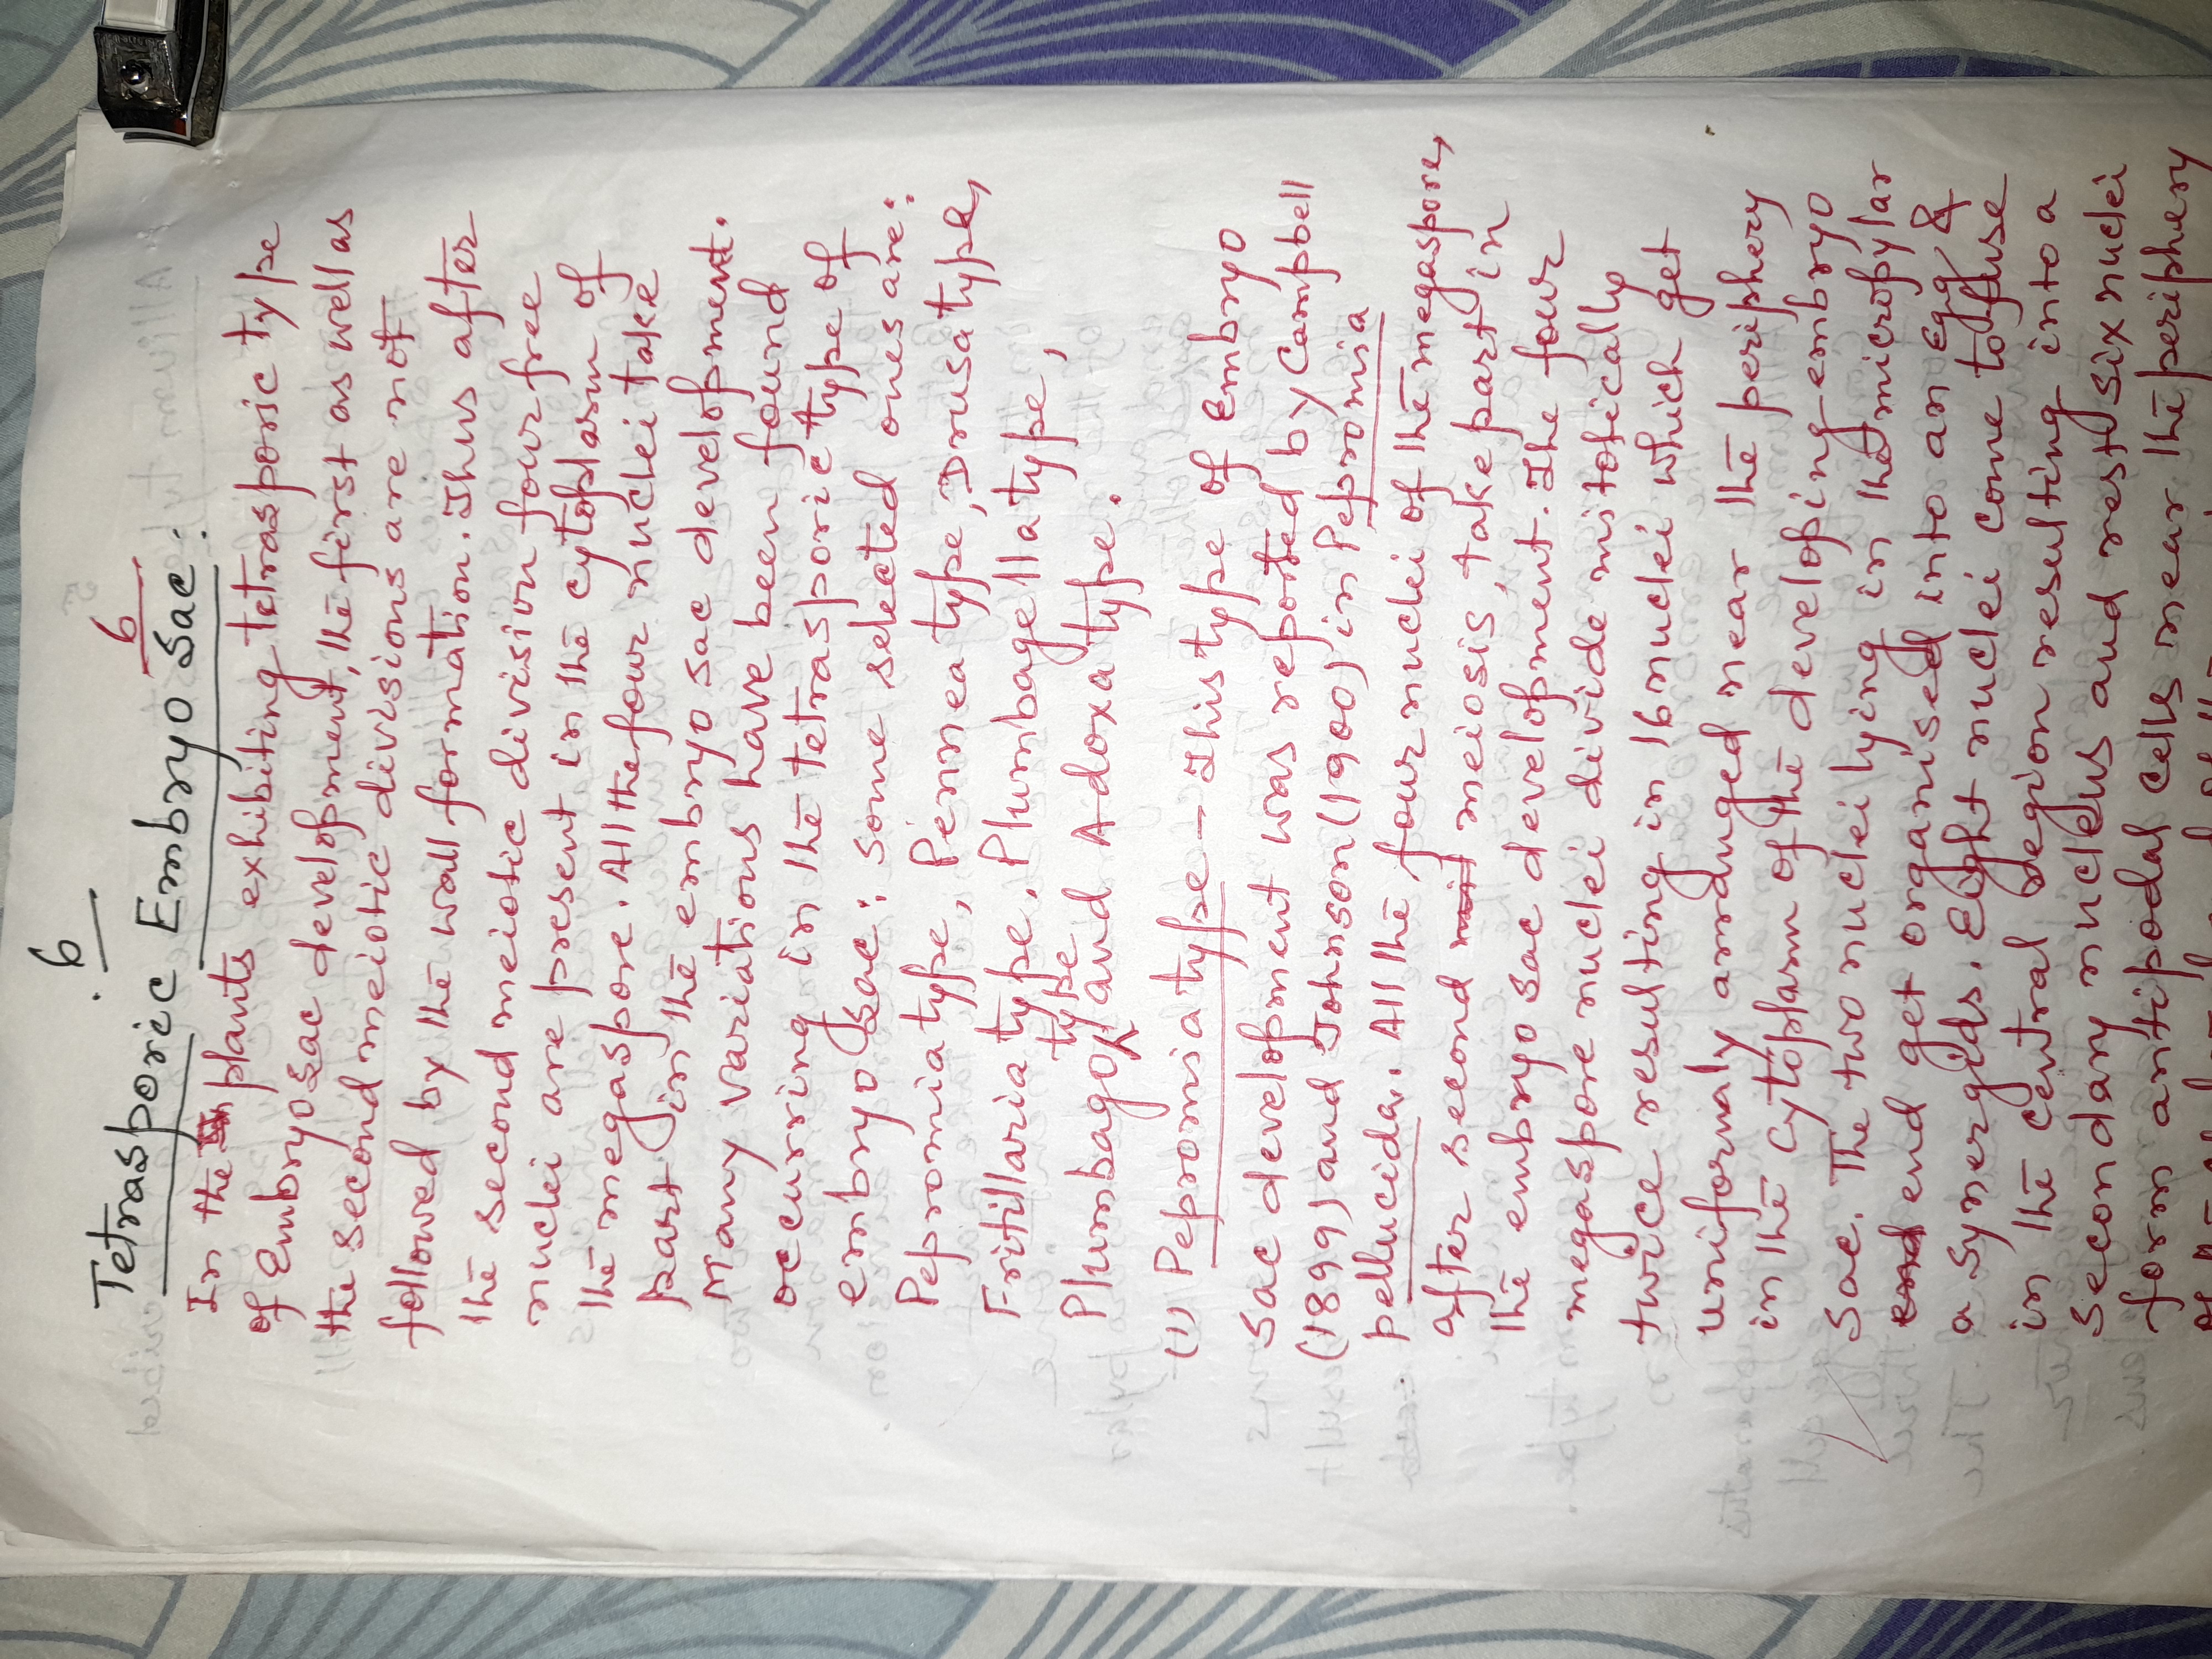 6
6
Tetrasporic Embryo Sac.
In the plants exhibiting tetrasporic type
of Embryo Sac development, the first as well as
the second meiotic divisions are not
followed by the wall formation. Thus after
the second meiotic division four free
nuclei are present in the cytoplasm of
the megaspore. All the four nuclei take
part in the embryo sac development.
Many variations have been found
occurring in the tetrasporic type of
embryo sac: some selected ones are:
Pepromia type, Pennea type, Drusa type,
Fritillaria type, Plumbagella type,
Plumbago type and Adoxa type.
(1) Pepromia type - This type of Embryo
Sac development was reported by Campbell
(1899) and Johnson (1900) in Pepromia
pellucida. All the four nuclei of the megaspore,
after second meiosis, take part in
the embryo sac development. The four
megaspore nuclei divide mitotically
twice resulting in 16 nuclei which get
uniformaly arranged near the periphery
in the cytoplasm of the developing embryo
Sac. The two nuclei lying in the micropylar
end get organised into an egg &
a synergids. Eight nuclei come to fuse
in the central region resulting into a
secondary nucleus and rest six nuclei
form antipodal cells near the periphery